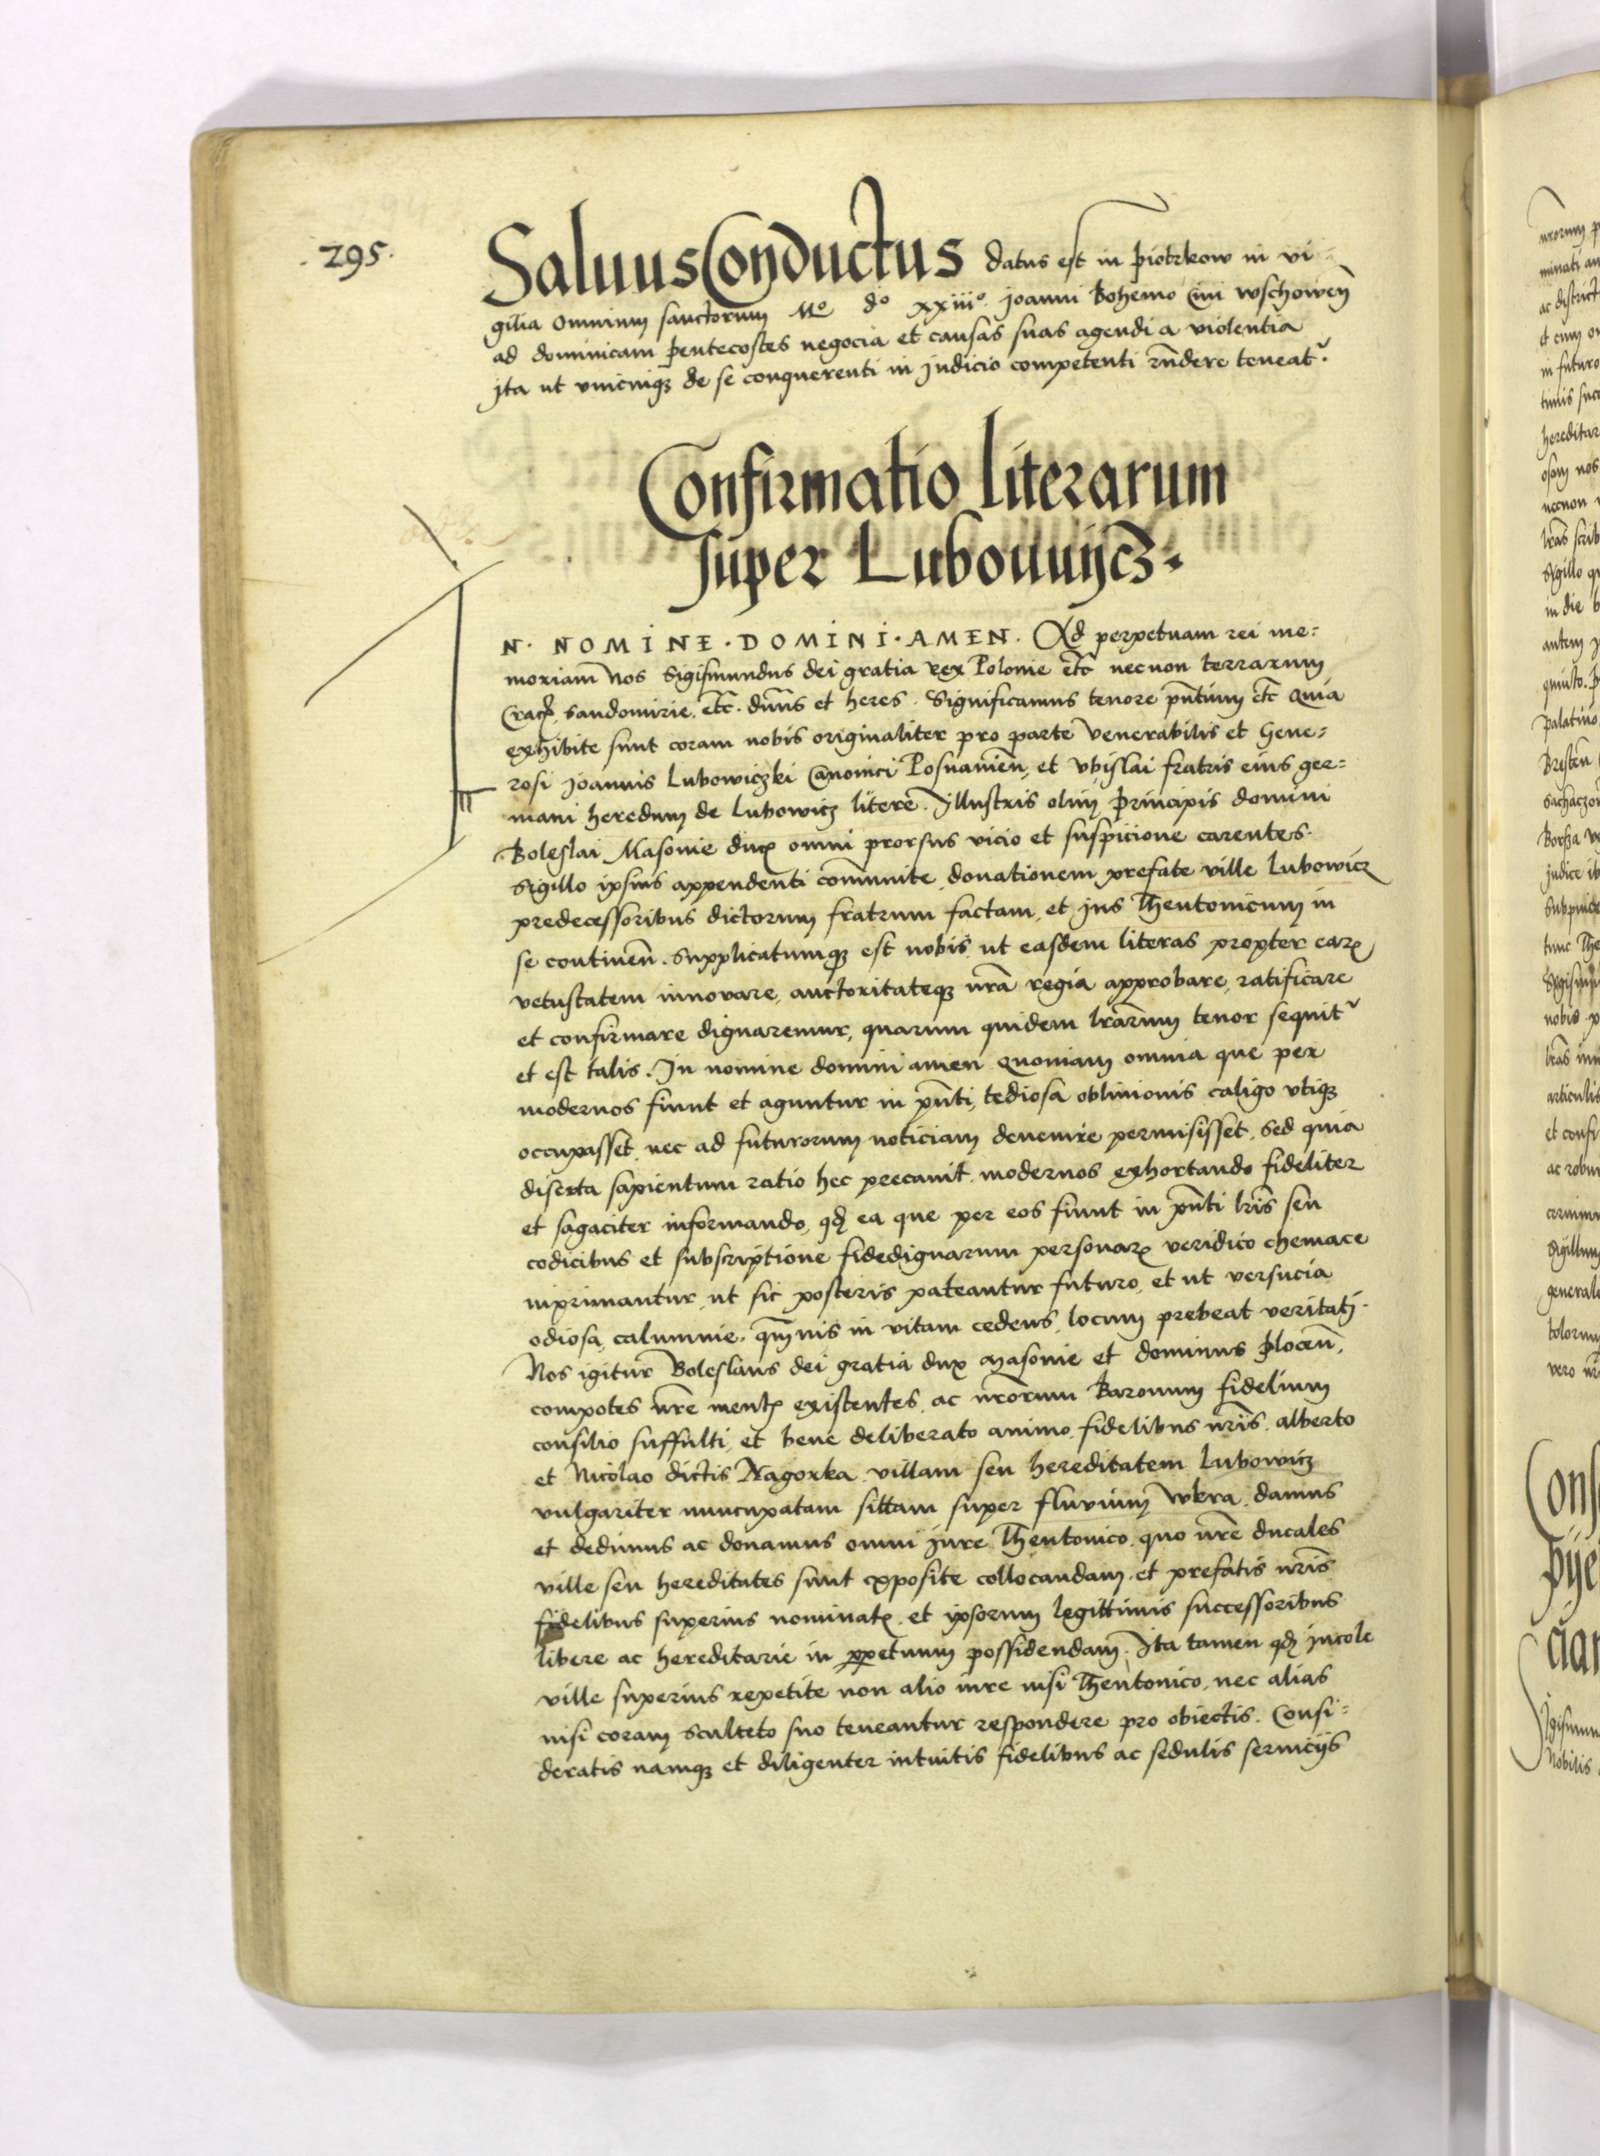 .295.
Saluus Conductus datus est in piotrkow in vi-
gilia Omnium sanctorum Mº dº xxiiiº. Joanni Bohemo Ciui wschoweñ
ad dominicam pentecostes negocia et causas suas agendi a violentia
Jta ut vnicuiqꝫ de se conquerenti in judicio competenti rñdere teneat᷑.
Confirmatio literarum
super Lubouuijcz.
N. NOMINE. DOMINI. AMEN. Ad perpetuam rei me=
moriam̄ Nos Sigismundus dei gratia rex Polonie etc̄ necnon terrarum
Cracꝫ. Sandomirie. etc̄. dn̄s et heres. Significamus tenore pn̄tium etc̄ Quia
exhibite sunt coram nobis originaliter pro parte Venerabilis et Gene=
rosi Joannis Lubowiczki Canonici Posnanieñ, et vbislai fratris eius ger=
mani heredum de Lubowicz litere. Jllustris olim principis domini
Boleslai Masouie ducꝭ omni prorsus vicio et suspicione carentes.
Sigillo ipsius appendenti com̄unite donationem prefate ville Lubowicz
predecessoribus dictorum fratrum factam et jus Theutonicum in
se contineñ. Supplicatumqꝫ est nobis ut easdem literas propter earꝭ
vetustatem innovare, auctoritateqꝫ nr̄a regia approbare, ratificare
et confirmare dignaremur, quarum quidem lr̄arum tenor sequit᷑
et est talis. In nomine domini amen Quoniam omnia que per
modernos fiunt et aguntur in pn̄ti, tediosa obliuionis caligo vtiqꝫ
occupasset, nec ad futurorum noticiam deuenire permisisset, Sed quia
diserta sapientum ratio hec precauit modernos exhortando fideliter
et sagaciter informando, qđ ea que per eos fiunt in pn̄ti lr̄is seu
codicibus et subscriptione fidedignarum personarꝭ veridico chemace
inprimantur, ut sic posteris pateantur futuro, et ut versucia
odiosa, calumnie. qm̄uis in vitam cedens, locum prebeat veritatj.
Nos igitur Boleslaus dei gratia dux Masouie et dominus ploceñ,
compotes nr̄e mentꝭ existentes, ac nr̄orum Baronum fidelium
consilio suffulti, et bene deliberato animo fidelibus nr̄is, alberto
et Nicolao dictis Nagorka villam seu hereditatem Lubowicz
vulgariter nuncupatam sittam super fluuium wkra, damus
et dedimus ac donamus omni jure Theutonico, quo nr̄e ducales
ville seu hereditates sunt exposite collocandam, et prefatis nr̄is
fidelibus superius nominatꝭ, et ipsorum legittimis successoribus
libere ac hereditarie in ꝑpetuum possidendam̄. Jta tamen qđ jncole
ville superius repetite non alio iure nisi Theutonico, nec alias
nisi coram sculteto suo teneantur respondere pro obiectis. Consi=
deratis namqꝫ et diligenter intuitis fidelibus ac sedulis seruicijs